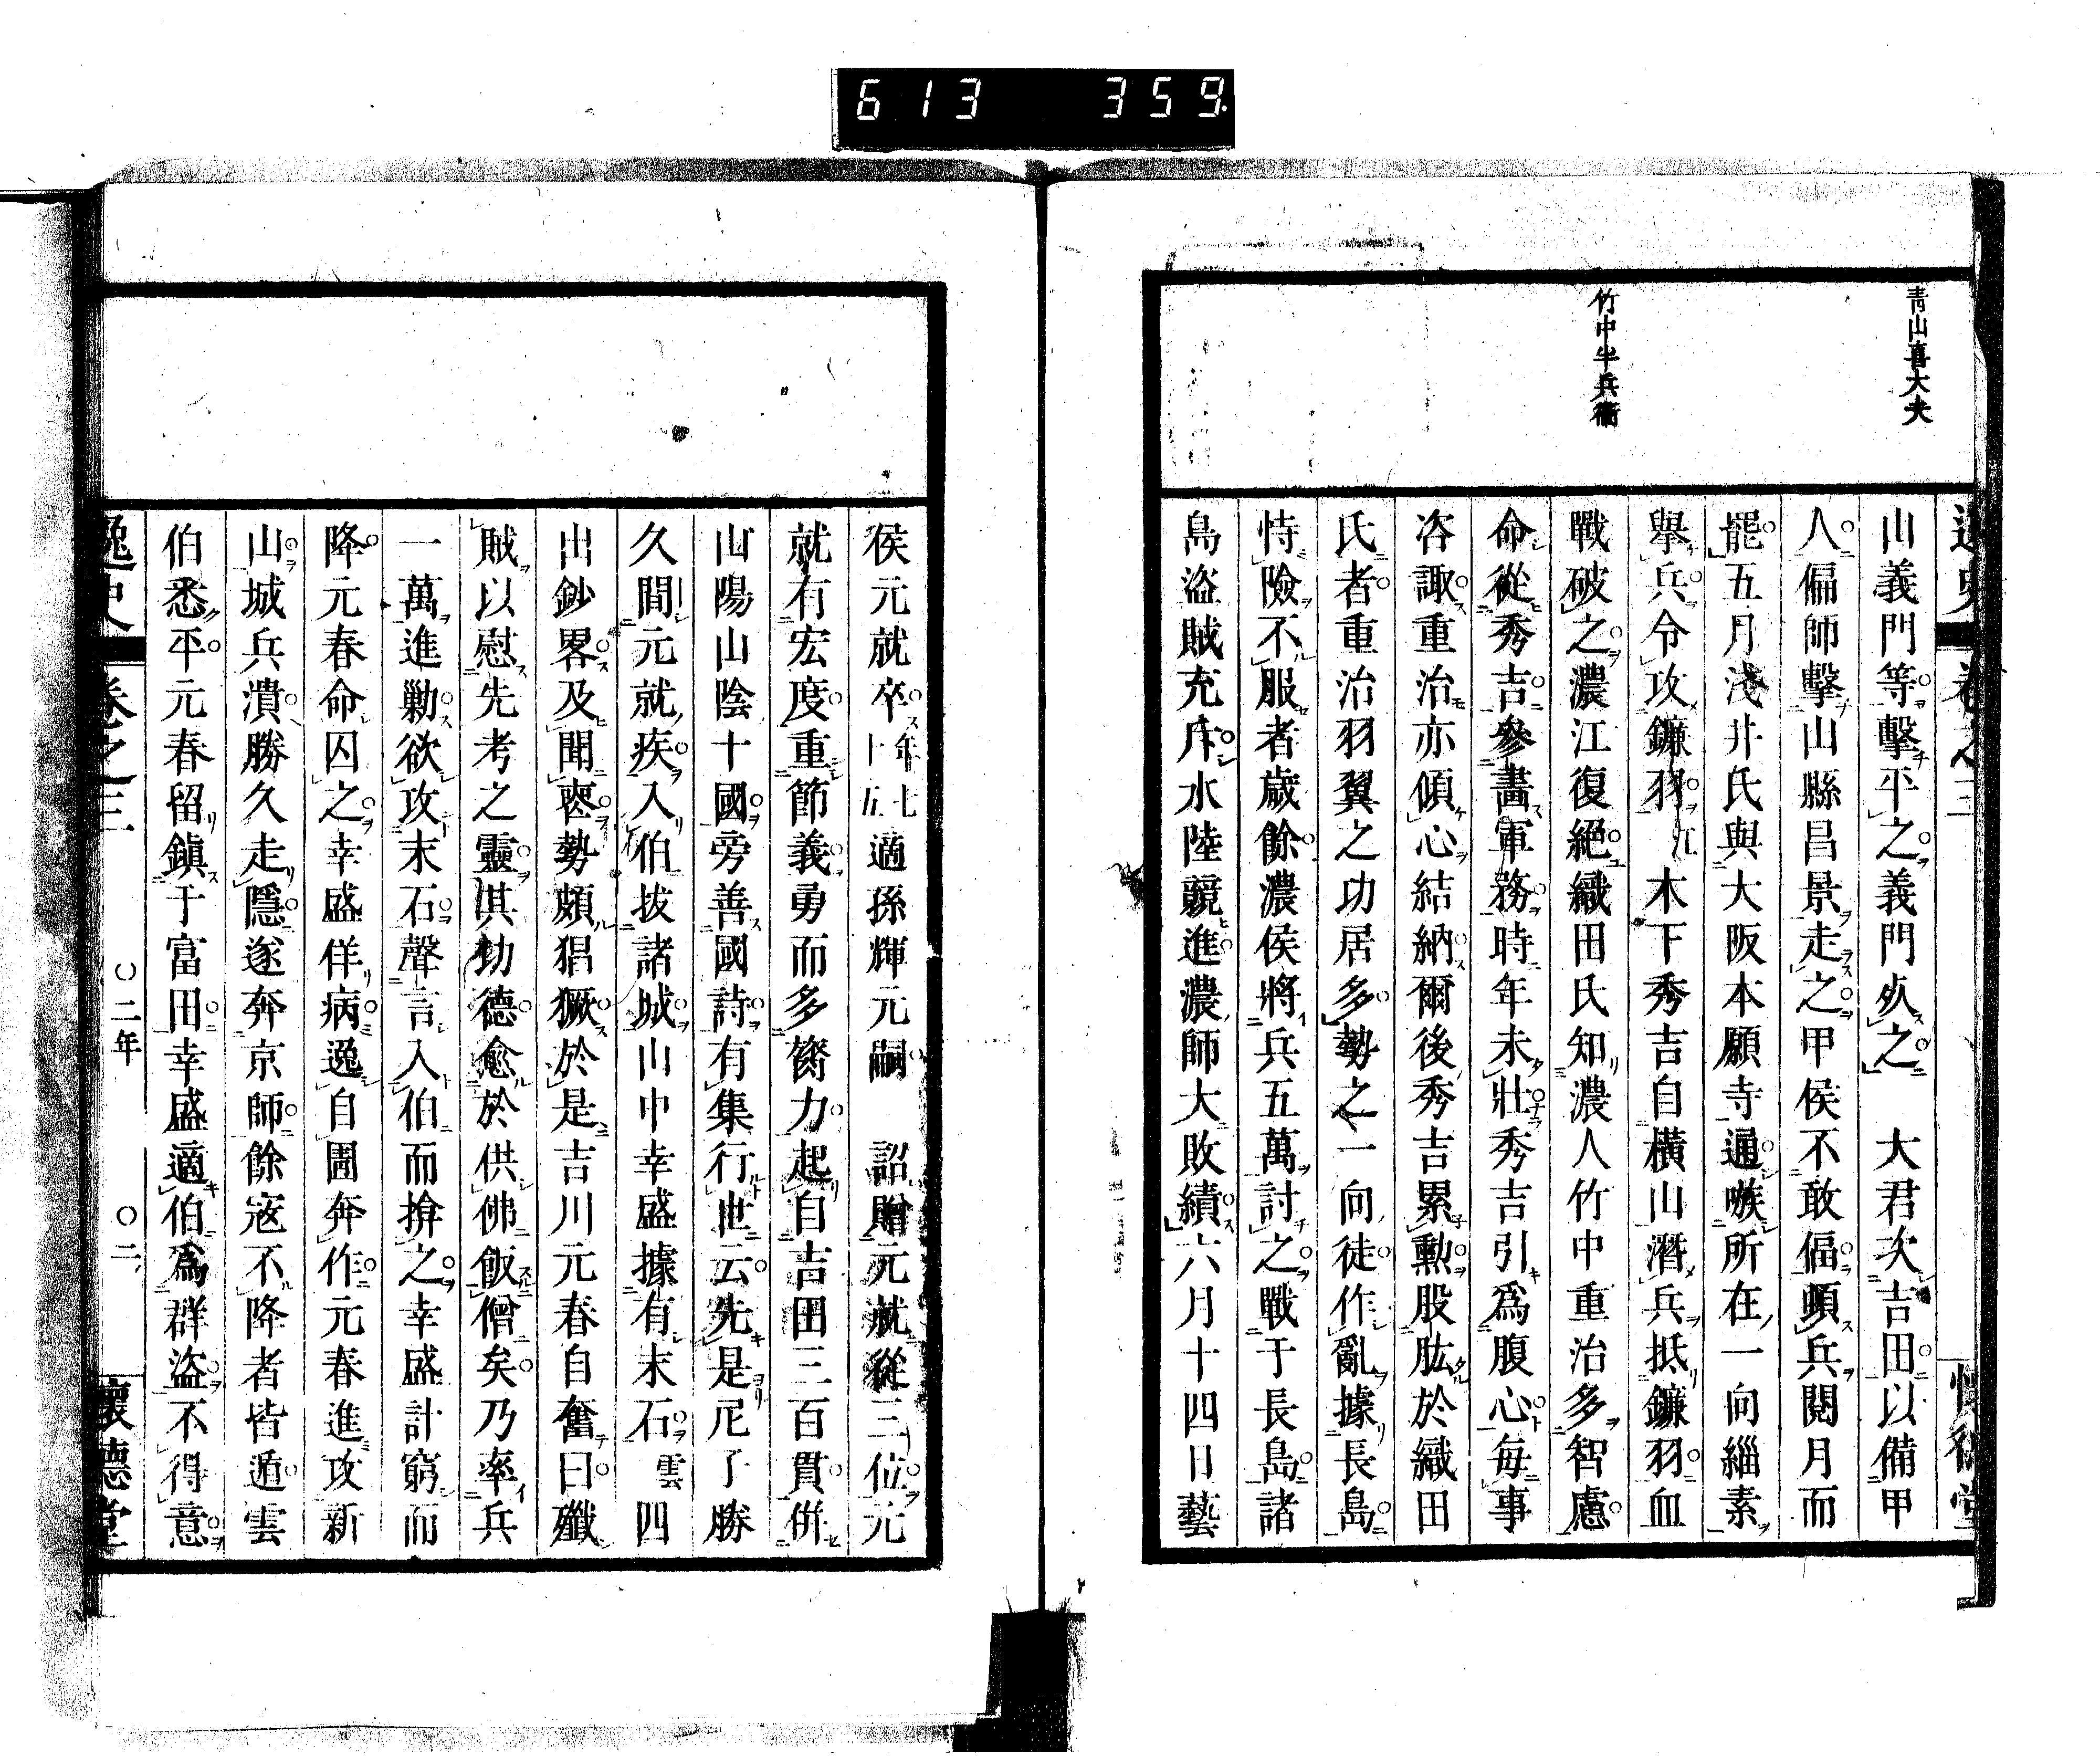 613 359
逸史
卷之三
懷德堂
青山喜大夫
竹中半兵衞
山義門等擊平之義門死之　大君次吉田以備甲
人偏師擊山縣昌景走之甲侯不敢偪頓兵閱月而
罷五月淺井氏與大阪本願寺通嗾所在一向緇素
擧兵令攻鎌羽江木下秀吉自橫山潛兵抵鎌羽血
戰破之濃江復絕織田氏知濃人竹中重治多智慮
命從秀吉參畫軍務時年未壯秀吉引爲腹心每事
咨諏重治亦傾心結納爾後秀吉累勲股肱於織田
氏者重治羽翼之功居多勢之一向徒作亂據長島
恃險不服者歲餘濃侯將兵五萬討之戰于長島諸
島盜賊充斥水陸競進濃師大敗績六月十四日藝
侯元就卒年七十五適孫輝元嗣　詔贈元就從三位元
就有宏度重節義勇而多膂力起自吉田三百貫併
山陽山陰十國旁善國詩有集行世云先是尼子勝
久間元就疾入伯拔諸城山中幸盛據有末石雲四
出鈔畧及聞喪勢頗猖獗於是吉川元春自奮曰殲
賊以慰先考之靈其功德愈於供佛飯僧矣乃率兵
一萬進勦欲攻末石聲言入伯而揜之幸盛計窮而
降元春命囚之幸盛佯病逸自圊奔作元春進攻新
山城兵潰勝久走隱遂奔京師餘寇不降者皆遁雲
伯悉平元春留鎭于富田幸盛適伯爲群盜不得意
逸史
卷之三
〇二年
〇二
懷德堂